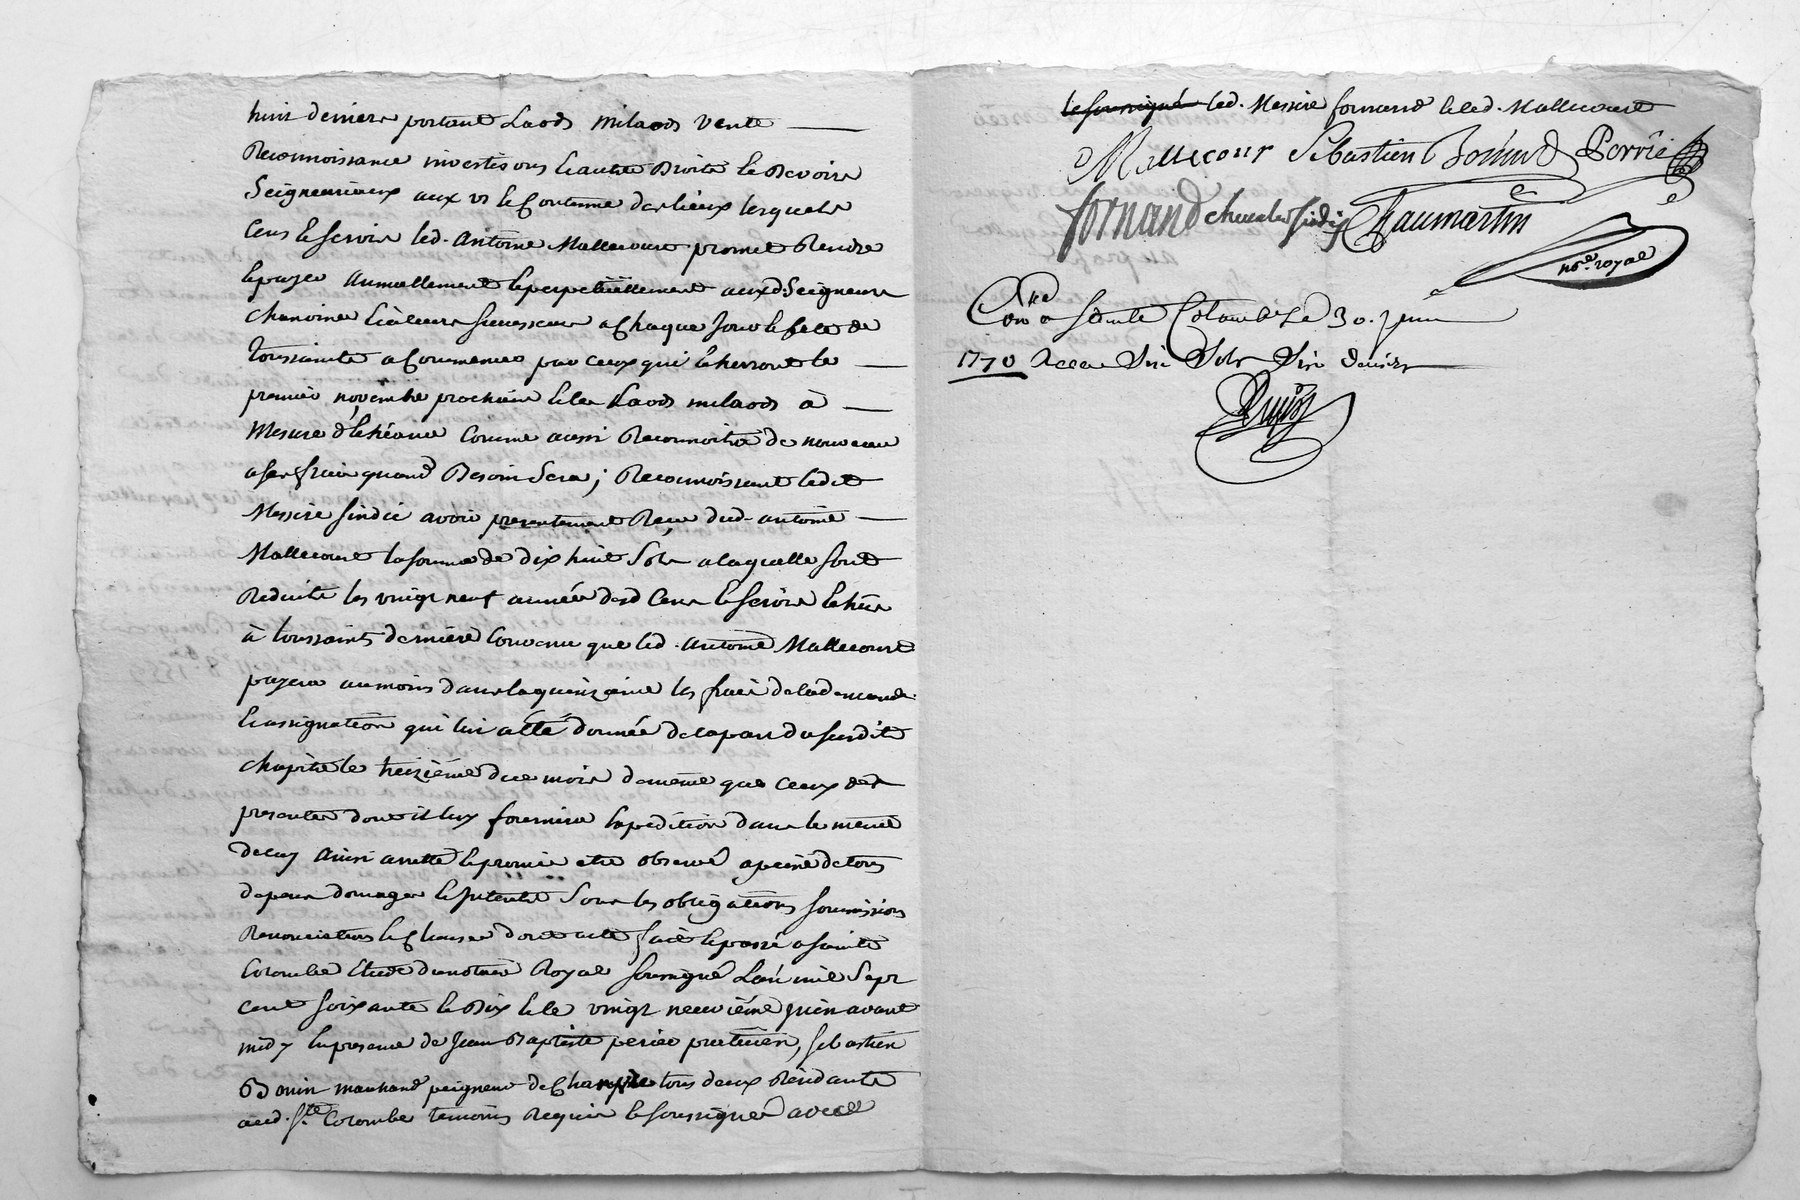 huit deniers portant Laods milaods vente
Reconnoissance investisons & autre Droits & Devoirs
Seigneuriaux aux us & Coutume des lieux lesquels
Cens & servis led. Antoine Mallecourt promet Rendre
& payer annuellement & perpetuellement auxd. Seigneurs
Chanoine & à leurs successeurs a Chaque Jour & fete de
toussaints a Commencer par ceux qui echerront le
premier novembre prochain & les Laods milaods à
Mesure d'echéance Comme aussi Reconnoitre de nouveau
a ses frais quand Besoin Sera; Reconnoissant ledit
Messire sindic avoir presentement Reçu dud. antoine
Mallecourt la somme de dix huit Sols a laquelle sont
Reduits les vingt neuf année desd Cens & servis echus
à toussaints derniere Convenu que led. Antoine Mallecourt
payera au moins dans la quinzaine les frais de la demande
& assignation qui lui a été donnée de la part du susdit
chapitre le treizième du ce mois de meme que ceux des
presentes dont il luy fournira Expedition dans le meme
delay Ainsi arretté & promis etre observé a peine de tous
depens domages & interets Sous les obligations soumissions
Renonciations & Clauses dont acte fait & passé a sainte
Colombe Etude du notaire Royal soussigné L'an mil Sept
cent soixante & Dix & le vingt neuvième juin avant
midy En presence de Jean Baptiste perier praticien, sebastien
Bonin marchand peigneur de Chanvre tous deux Residants
aud. Ste. Colombe temoins Requis & soussignés avec
& soussigné led. Messire fornand & led. Mallecourt
Mallecour Sebastien Bonin Perrié
fornand chevalier sindic Chaumartin
nre. royal
Con. a Sainte Colombe Le 30. juin
1770 Recu Six Sols Six deniers